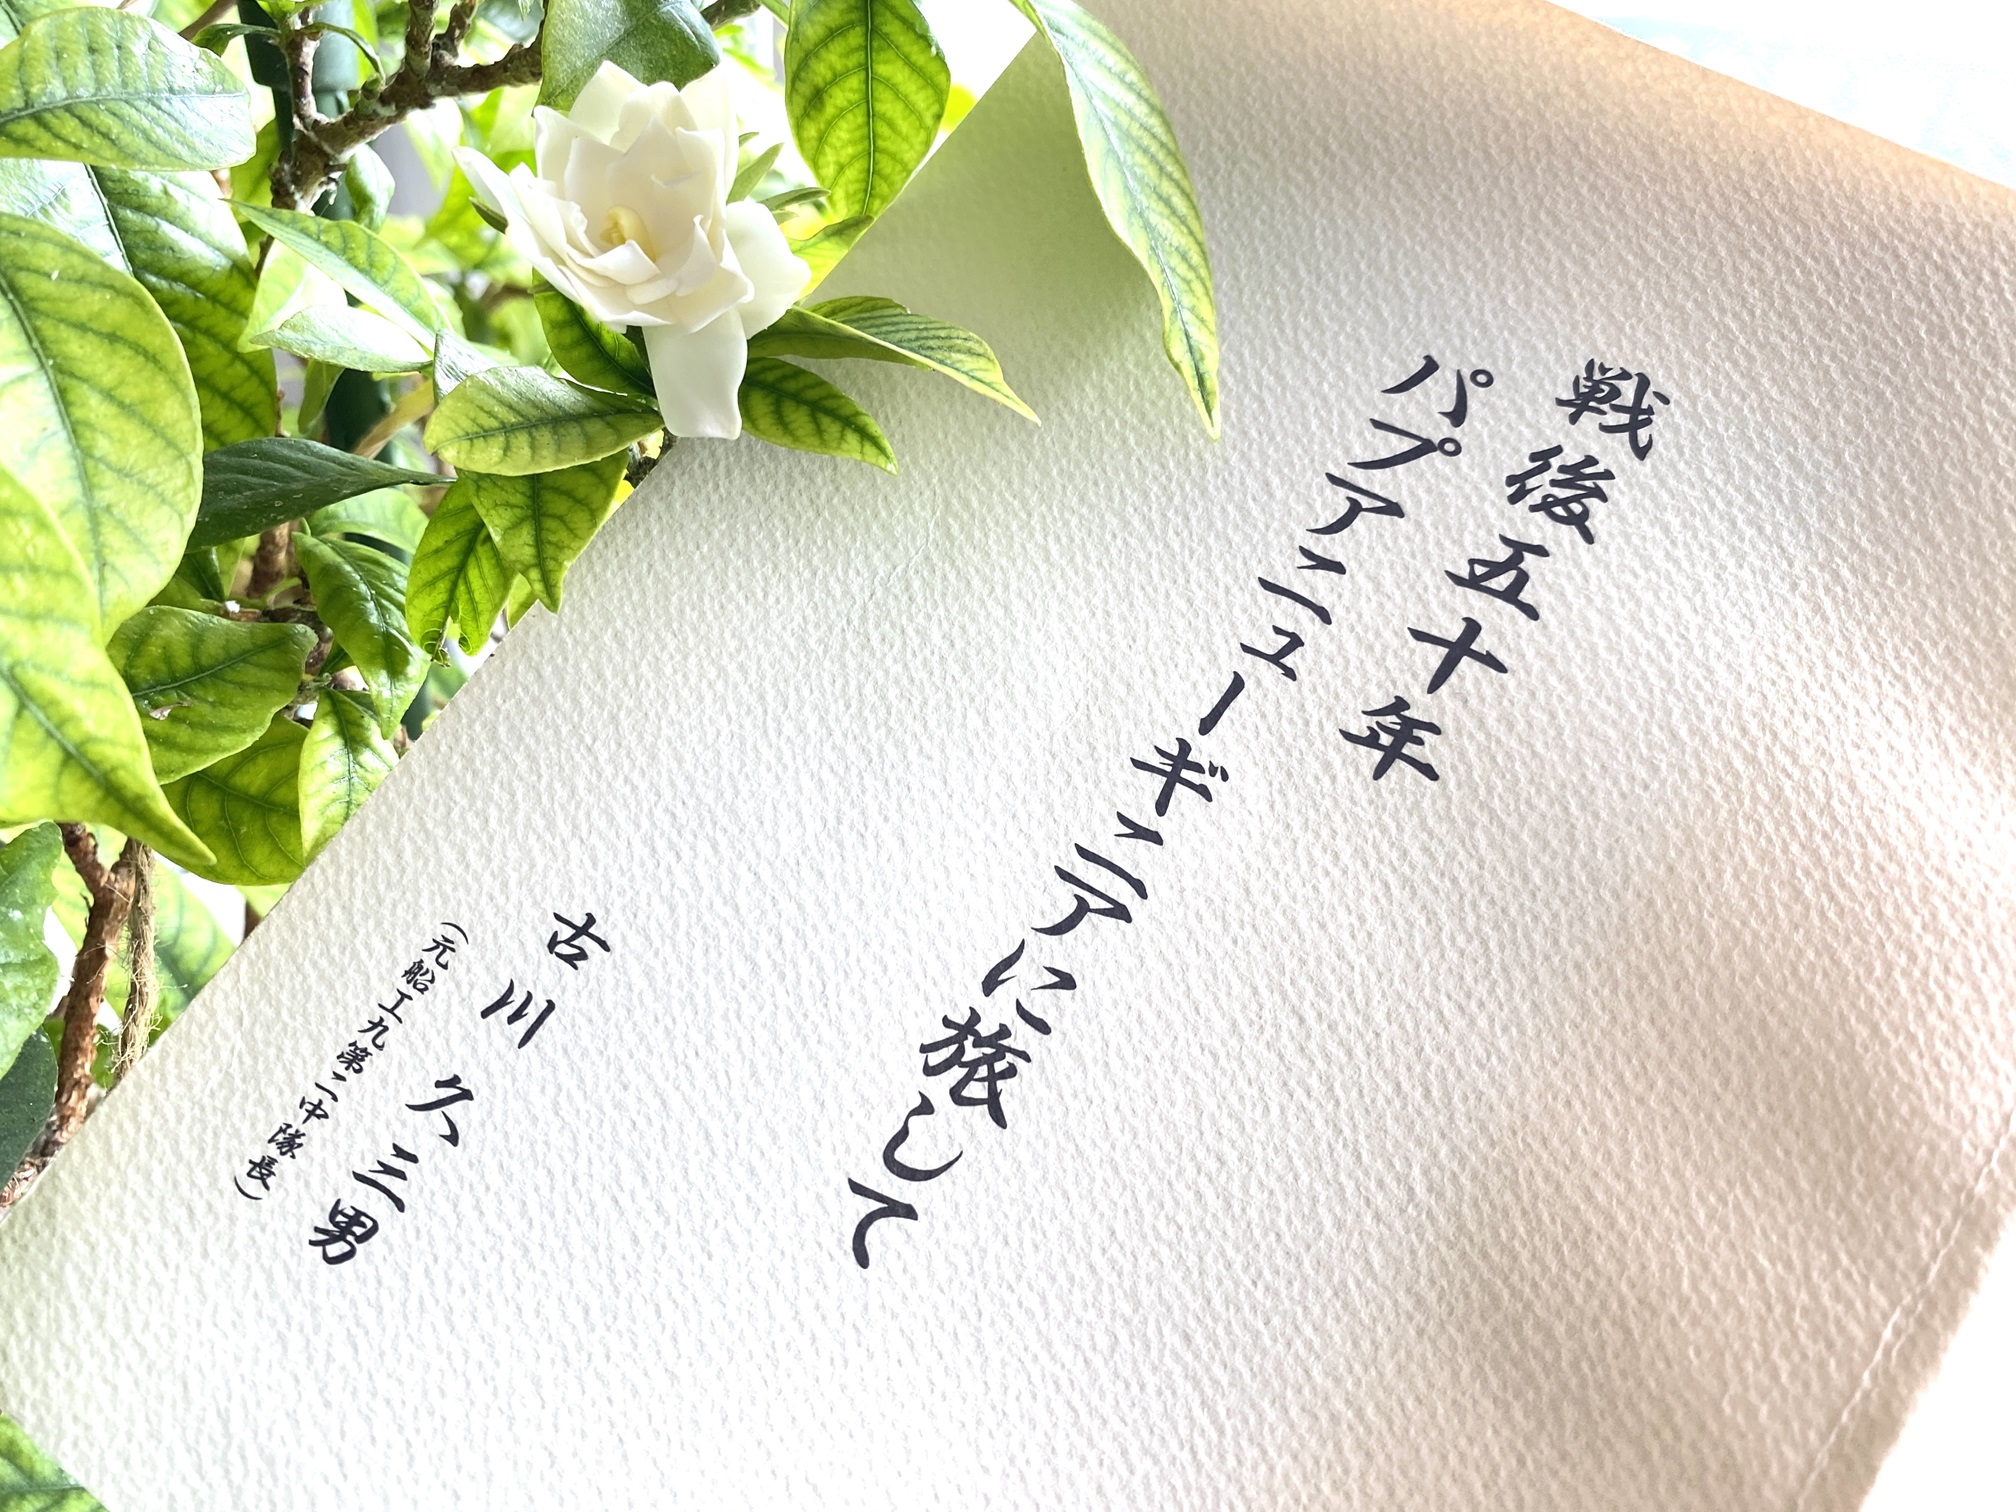 戦後五十年
パプアニューギニアに旅して
古川久三男
（元船工九第二中隊長）